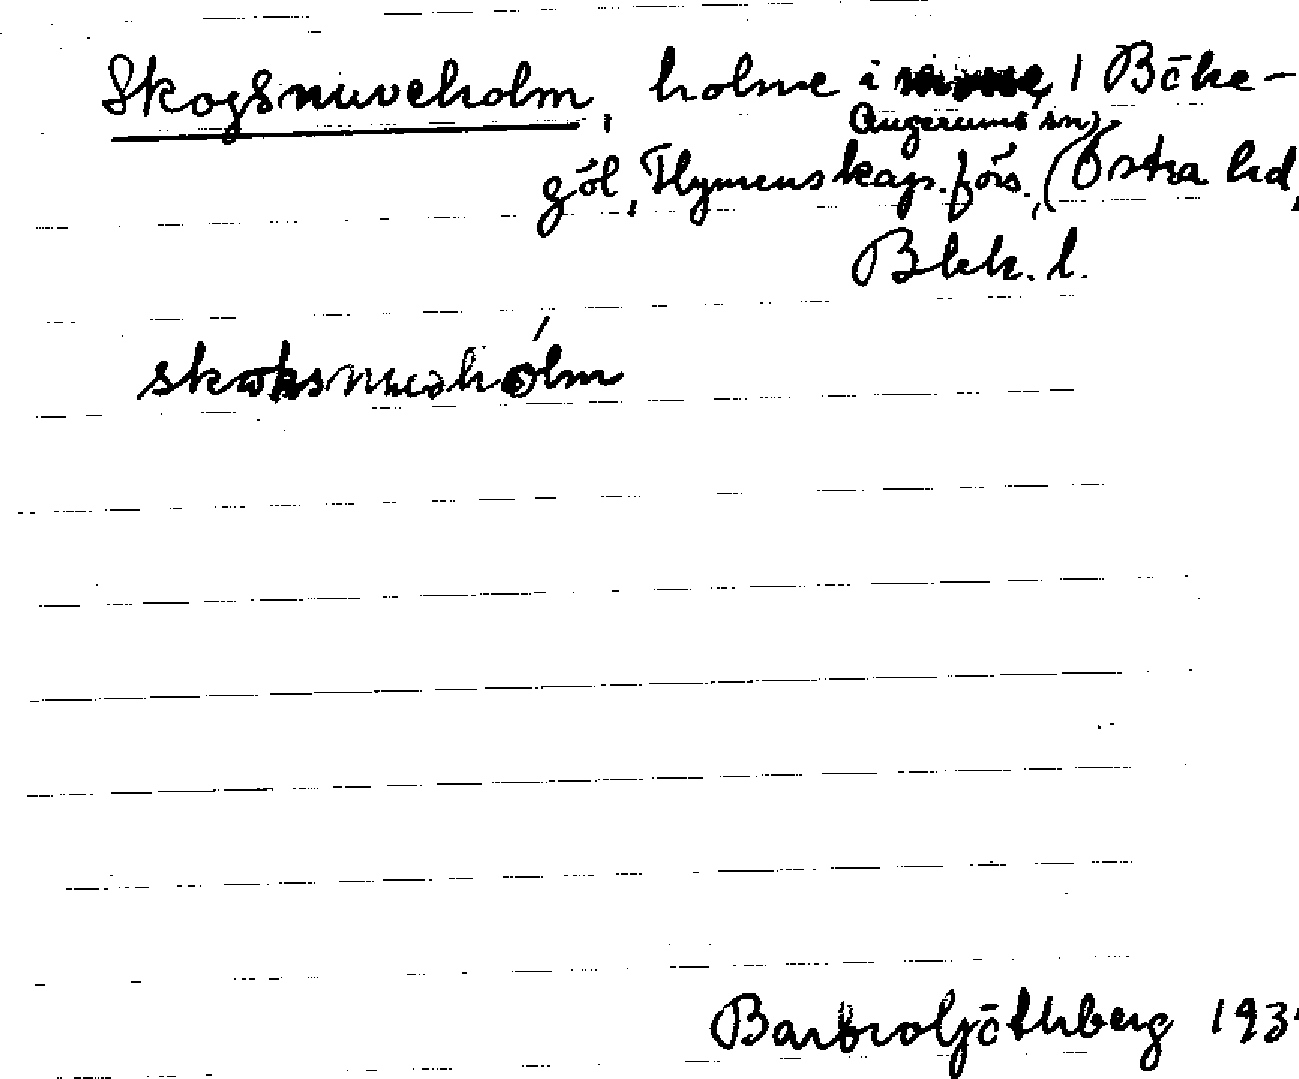 Skogsnuveholm, holme i 1 Böke-
Augerums sn)
göl, Flymens kap. förs. (Östra hd,
Blek. l.
skoksnuvəhólm
Barbro Göthberg 193